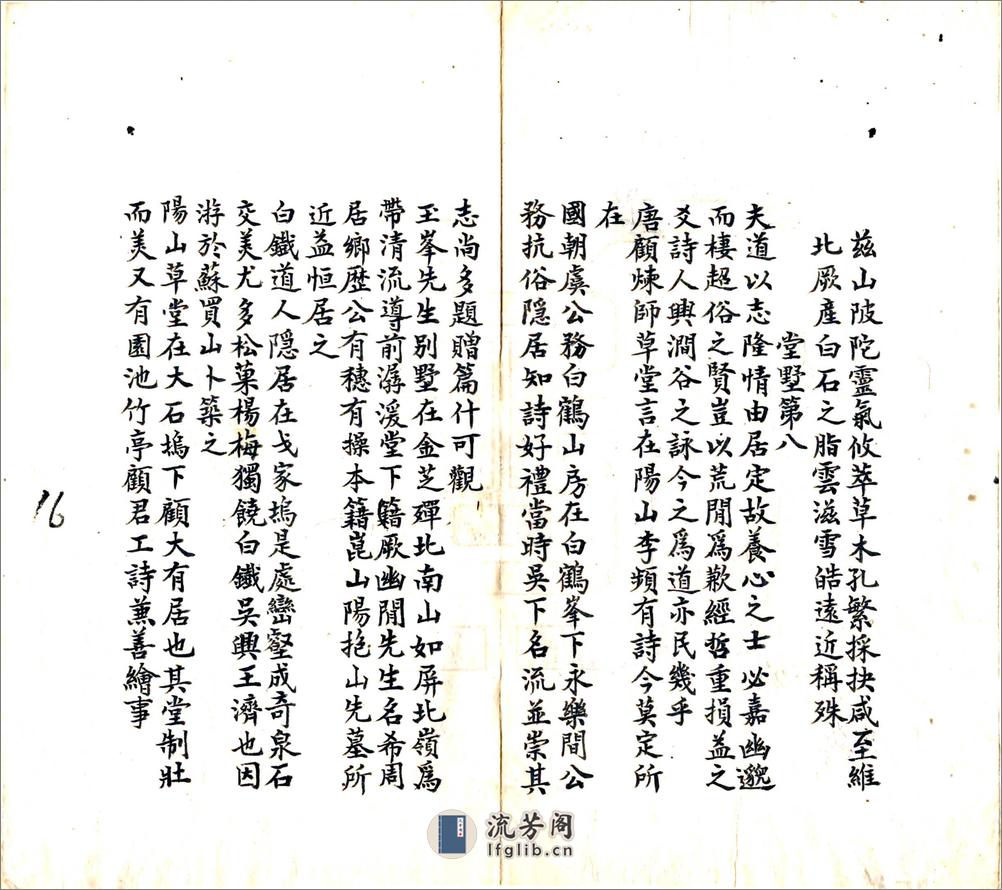 茲山陂陀靈氣攸萃草木孔繁採抉咸至維
北厥産白石之脂雲滋雪皓遠近稱殊
堂墅第八
夫道以志隆情由居定故養心之士必嘉幽邈
而棲超俗之賢豈以荒閒爲歉經哲重損益之
爻詩人興澗谷之詠今之爲道亦民幾乎
唐顧煉師草堂言在陽山李頻有詩今莫定所
在
國朝虞公務白鶴山房在白鶴峯下永樂間公
務抗俗隱居知詩好禮當時吳下名流並崇其
志尚多題贈篇什可觀
玉峯先生別墅在金芝殫北南山如屏北嶺爲
帶清流導前潺湲堂下籍厥幽閒先生名希周
居鄉歷公有穗有操本籍崑山陽抱山先墓所
近益恒居之
白鐵道人隱居在戈家塢是處巒壑成奇泉石
交美尤多松菓楊梅獨饒白鐵吳興王濟也因
游於蘇買山卜築之
陽山草堂在大石塢下顧大有居也其堂制壯
而美又有園池竹亭顧君工詩兼善繪事
16
流芳阁
lfglib.cn